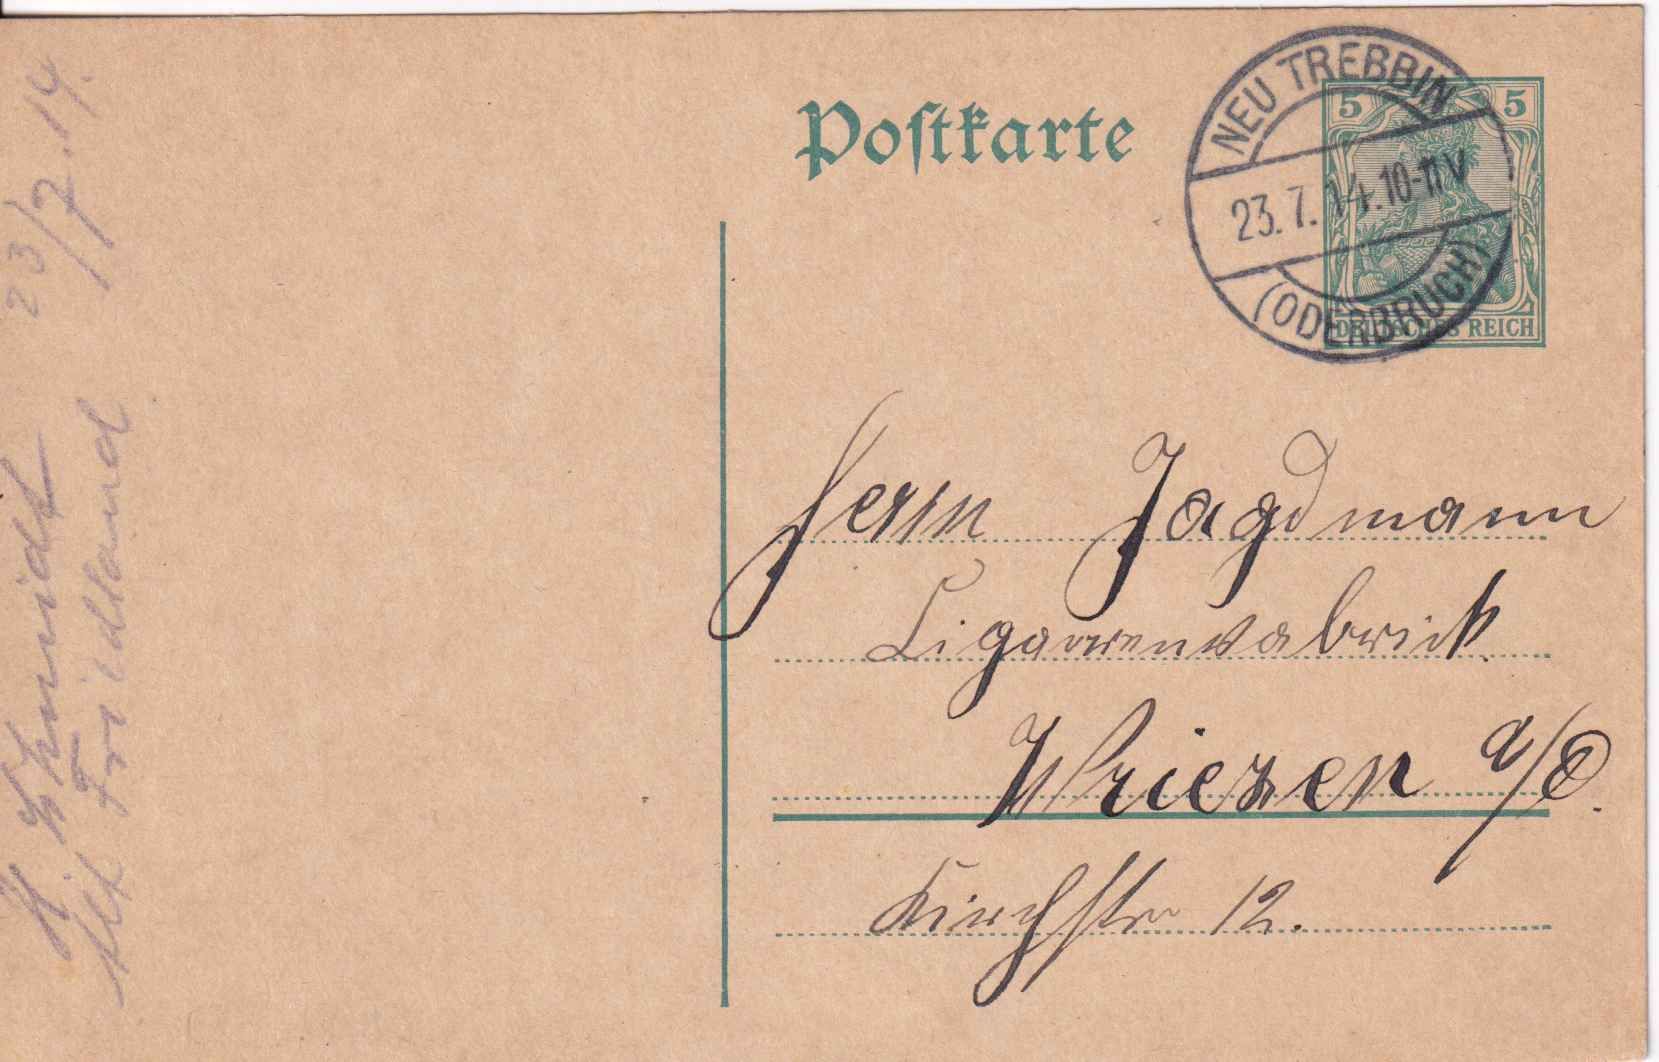 Postkarte
NEU TREBBIN
23.7.14.10-11V
(ODERBRUCH)
5 5
DEUTSCHES REICH
Herrn Jagdmann
Cigarrenfabrick
Wriezen a/O.
Kirchstr 12.
23/7.14.
Schmidt
Alt Friedland